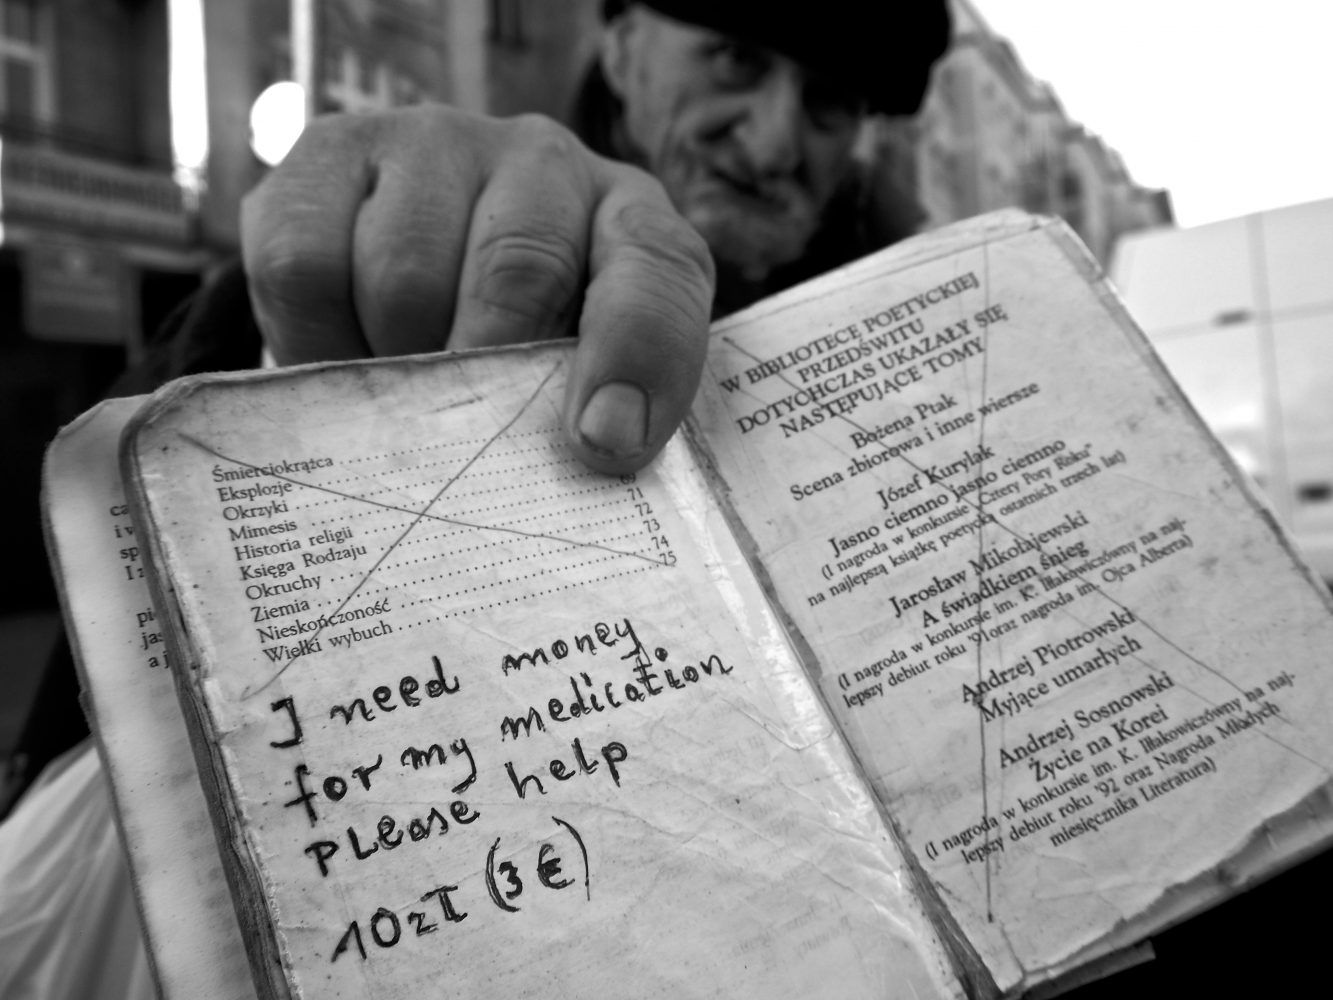 Śmierciokrążca
Eksplozje
Okrzyki 69
Mimesis 71
Historia religii 72
Księga Rodzaju 73
Okruchy 74
Ziemia 75
Nieskończoność
Wielki wybuch
I need money
for my medication
PLease help
10 zł (3 €)
W BIBLIOTECE POETYCKIEJ
PRZEDŚWITU
DOTYCHCZAS UKAZAŁY SIĘ
NASTĘPUJĄCE TOMY
Bożena Ptak
Scena zbiorowa i inne wiersze
Józef Kurylak
Jasno ciemno jasno ciemno
(I nagroda w konkursie „Cztery Pory Roku"
na najlepszą książkę poetycką ostatnich trzech lat)
Jarosław Mikołajewski
A świadkiem śnieg
(I nagroda w konkursie im. K. Iłłakowiczówny na naj-
lepszy debiut roku '91 oraz nagroda im. Ojca Alberta)
Andrzej Piotrowski
Myjące umarłych
Andrzej Sosnowski
Życie na Korei
(I nagroda w konkursie im. K. Iłłakowiczówny na naj-
lepszy debiut roku '92 oraz Nagroda Młodych
miesięcznika Literatura)